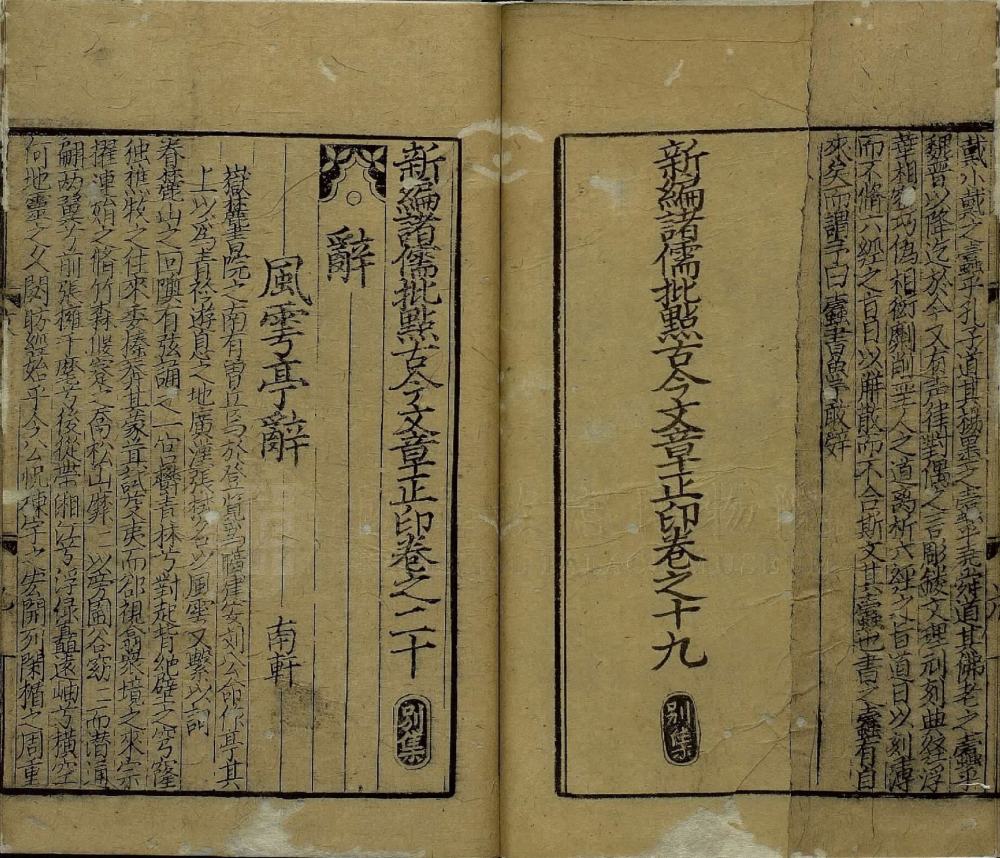 戴小戴之蠹乎孔子道其楊墨之蠹乎堯舜道其佛老之蠹乎
魏晋以降迄於今又有声律對偶之言彫鎪文理刓刻曲經浮
華相寃巧偽相衒劘削圣人之道离析六經之旨道日以刻薄
而不脩六經之旨日以解散而不合斯文其六蠹也書之蠹有自
来矣而謂予曰蠹書魚辭
新編諸儒批點古今文章正印卷之十九
别集
新編諸儒批點古今文章正印卷之二十
别集
辭
風雩亭辭
南軒
嶽麓書院之南有曽丘焉於登覽爲曠建安刘公命作亭其
上以爲青衿遊息之地廣漢張栻名以風雩又繫以詞
眷麓山之回隩有弦誦之一宫欝青林兮對起背絶壁之穹窿
独樵牧之往来委榛莽其蒙茸試芟夷而却視翕衆境之來宗
擢連娟之脩竹森偃蹇之喬松山靡二以旁圍谷窈二而潜通
翩两翼兮前張擁千麾兮後從帶湘江兮浮绿矗遠岫兮橫空
何地靈之久閟昉經始乎今公恍棟宇之宏開列闌楯之周重